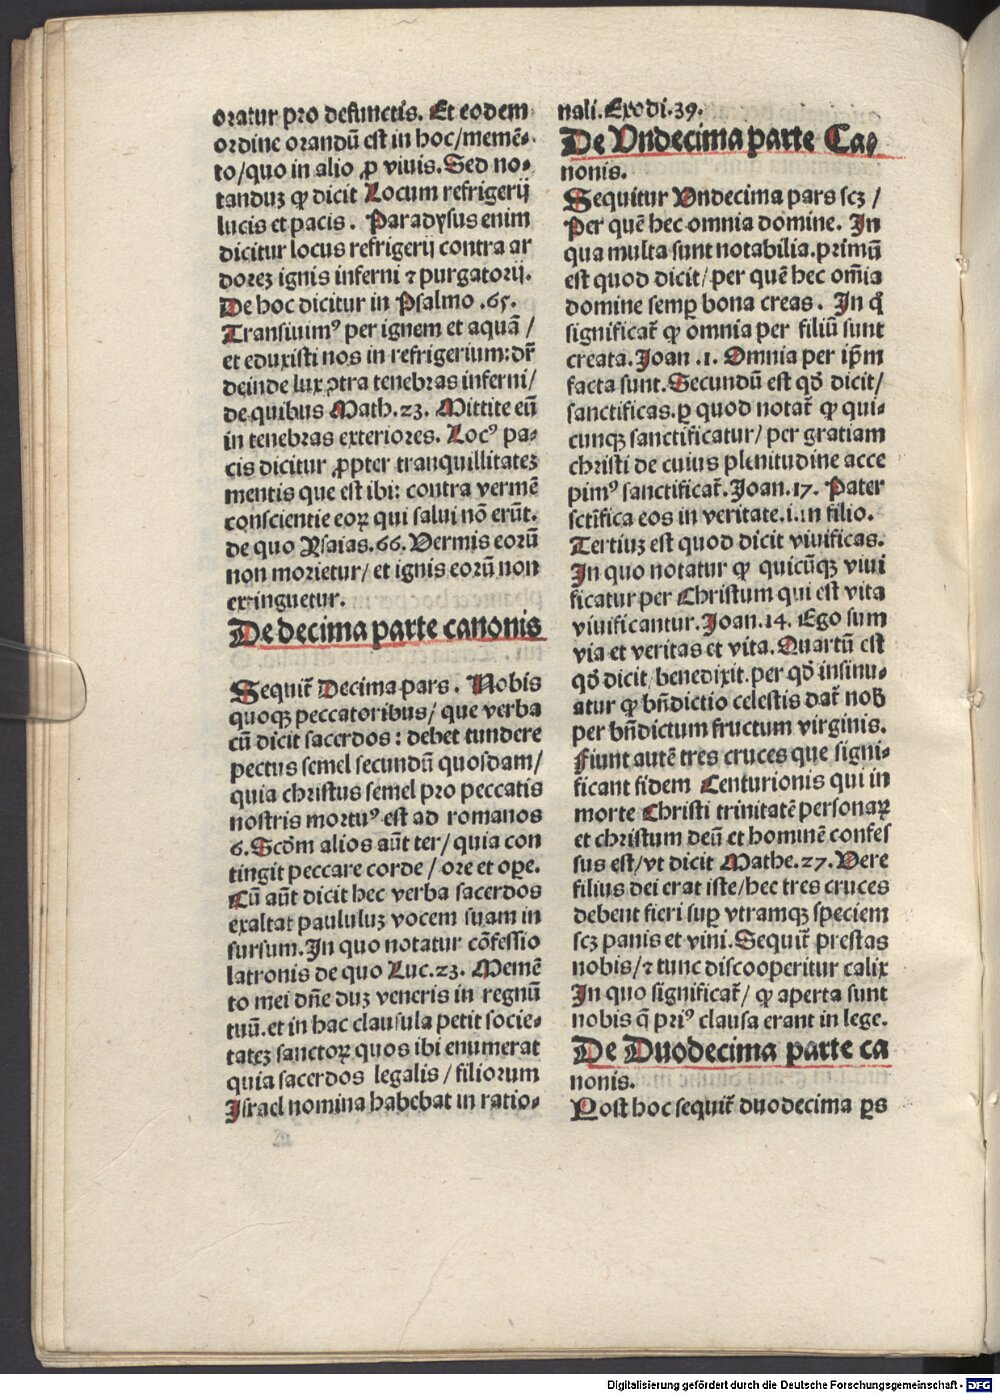 oratur pro defunctis. Et eodem
ordine orandū est in hoc/memē⸗
to/quo in alio ꝓ viuis. Sed no⸗
tanduꝫ ꝙ dicit Locum refrigerij
lucis et pacis. Paradysus enim
dicitur locus refrigerij contra ar
doreꝫ ignis inferni ⁊ purgatorij.
De hoc dicitur in Psalmo .65.
Transiuimꝰ per ignem et aquā /
et eduxisti nos in refrigerium: dr̄
deinde lux ꝯtra tenebras inferni/
de quibus Math.23. Mittite eū
in tenebras exteriores. Locꝰ pa⸗
cis dicitur ꝓpter tranquillitateꝫ
mentis que est ibi: contra vermē
conscientie eoꝝ qui salui nō erūt.
de quo Ysaias.66. Vermis eorū
non morietur/ et ignis eorū non
extinguetur.
De decima parte canonis
Sequit̄ Decima pars. Nobis
quoqꝫ peccatoribus/ que verba
cū dicit sacerdos: debet tundere
pectus semel secundū quosdam/
quia christus semel pro peccatis
nostris mortuꝰ est ad romanos
6. Scd̄m alios aūt ter/ quia con
tingit peccare corde/ ore et oꝑe.
Cū aūt dicit hec verba sacerdos
exaltat paululuꝫ vocem suam in
sursum. In quo notatur cōfessio
latronis de quo Luc.23. Memē
to mei dn̄e duꝫ veneris in regnū
tuū. et in hac clausula petit socie⸗
tateꝫ sanctoꝝ quos ibi enumerat
quia sacerdos legalis/ filiorum
Israel nomina habebat in ratio⸗
nali. Exodi.39.
De Vndecima parte Ca⸗
nonis.
Sequitur Vndecima pars scꝫ /
Per quē hec omnia domine. In
qua multa sunt notabilia. primū
est quod dicit/ per quē hec om̄ia
domine semꝑ bona creas. In q̄
significat̄ ꝙ omnia per filiū sunt
creata. Joan .1. Omnia per ip̄m
facta sunt. Secundū est qd̄ dicit/
sanctificas. ꝑ quod notat̄ ꝙ qui⸗
cunqꝫ sanctificatur/ per gratiam
christi de cuius plenitudine acce
pimꝰ sanctificat̄. Joan.17. Pater
sctīfica eos in veritate.i.in filio.
Tertiuꝫ est quod dicit viuificas.
In quo notatur ꝙ quicūqꝫ viui
ficatur per Christum qui est vita
viuificantur. Joan.14. Ego sum
via et veritas et vita. Quartū est
qd̄ dicit/ benedixit. per qd̄ insinu⸗
atur ꝙ bn̄dictio celestis dat̄ nob̄
per bn̄dictum fructum virginis.
Fiunt autē tres cruces que signi⸗
ficant fidem Centurionis qui in
morte Christi trinitatē personaꝝ
et christum deū et hominē confes
sus est/ vt dicit Mathe.27. Vere
filius dei erat iste/ hec tres cruces
debent fieri suꝑ vtramqꝫ speciem
scꝫ panis et vini. Sequit̄ prestas
nobis/ ⁊ tunc discooperitur calix
In quo significat̄/ ꝙ aperta sunt
nobis q̄ priꝰ clausa erant in lege.
De Duodecima parte ca
nonis.
Post hoc sequit̄ duodecima ꝑs
Digitalisierung gefördert durch die Deutsche Forschungsgemeinschaft - DFG